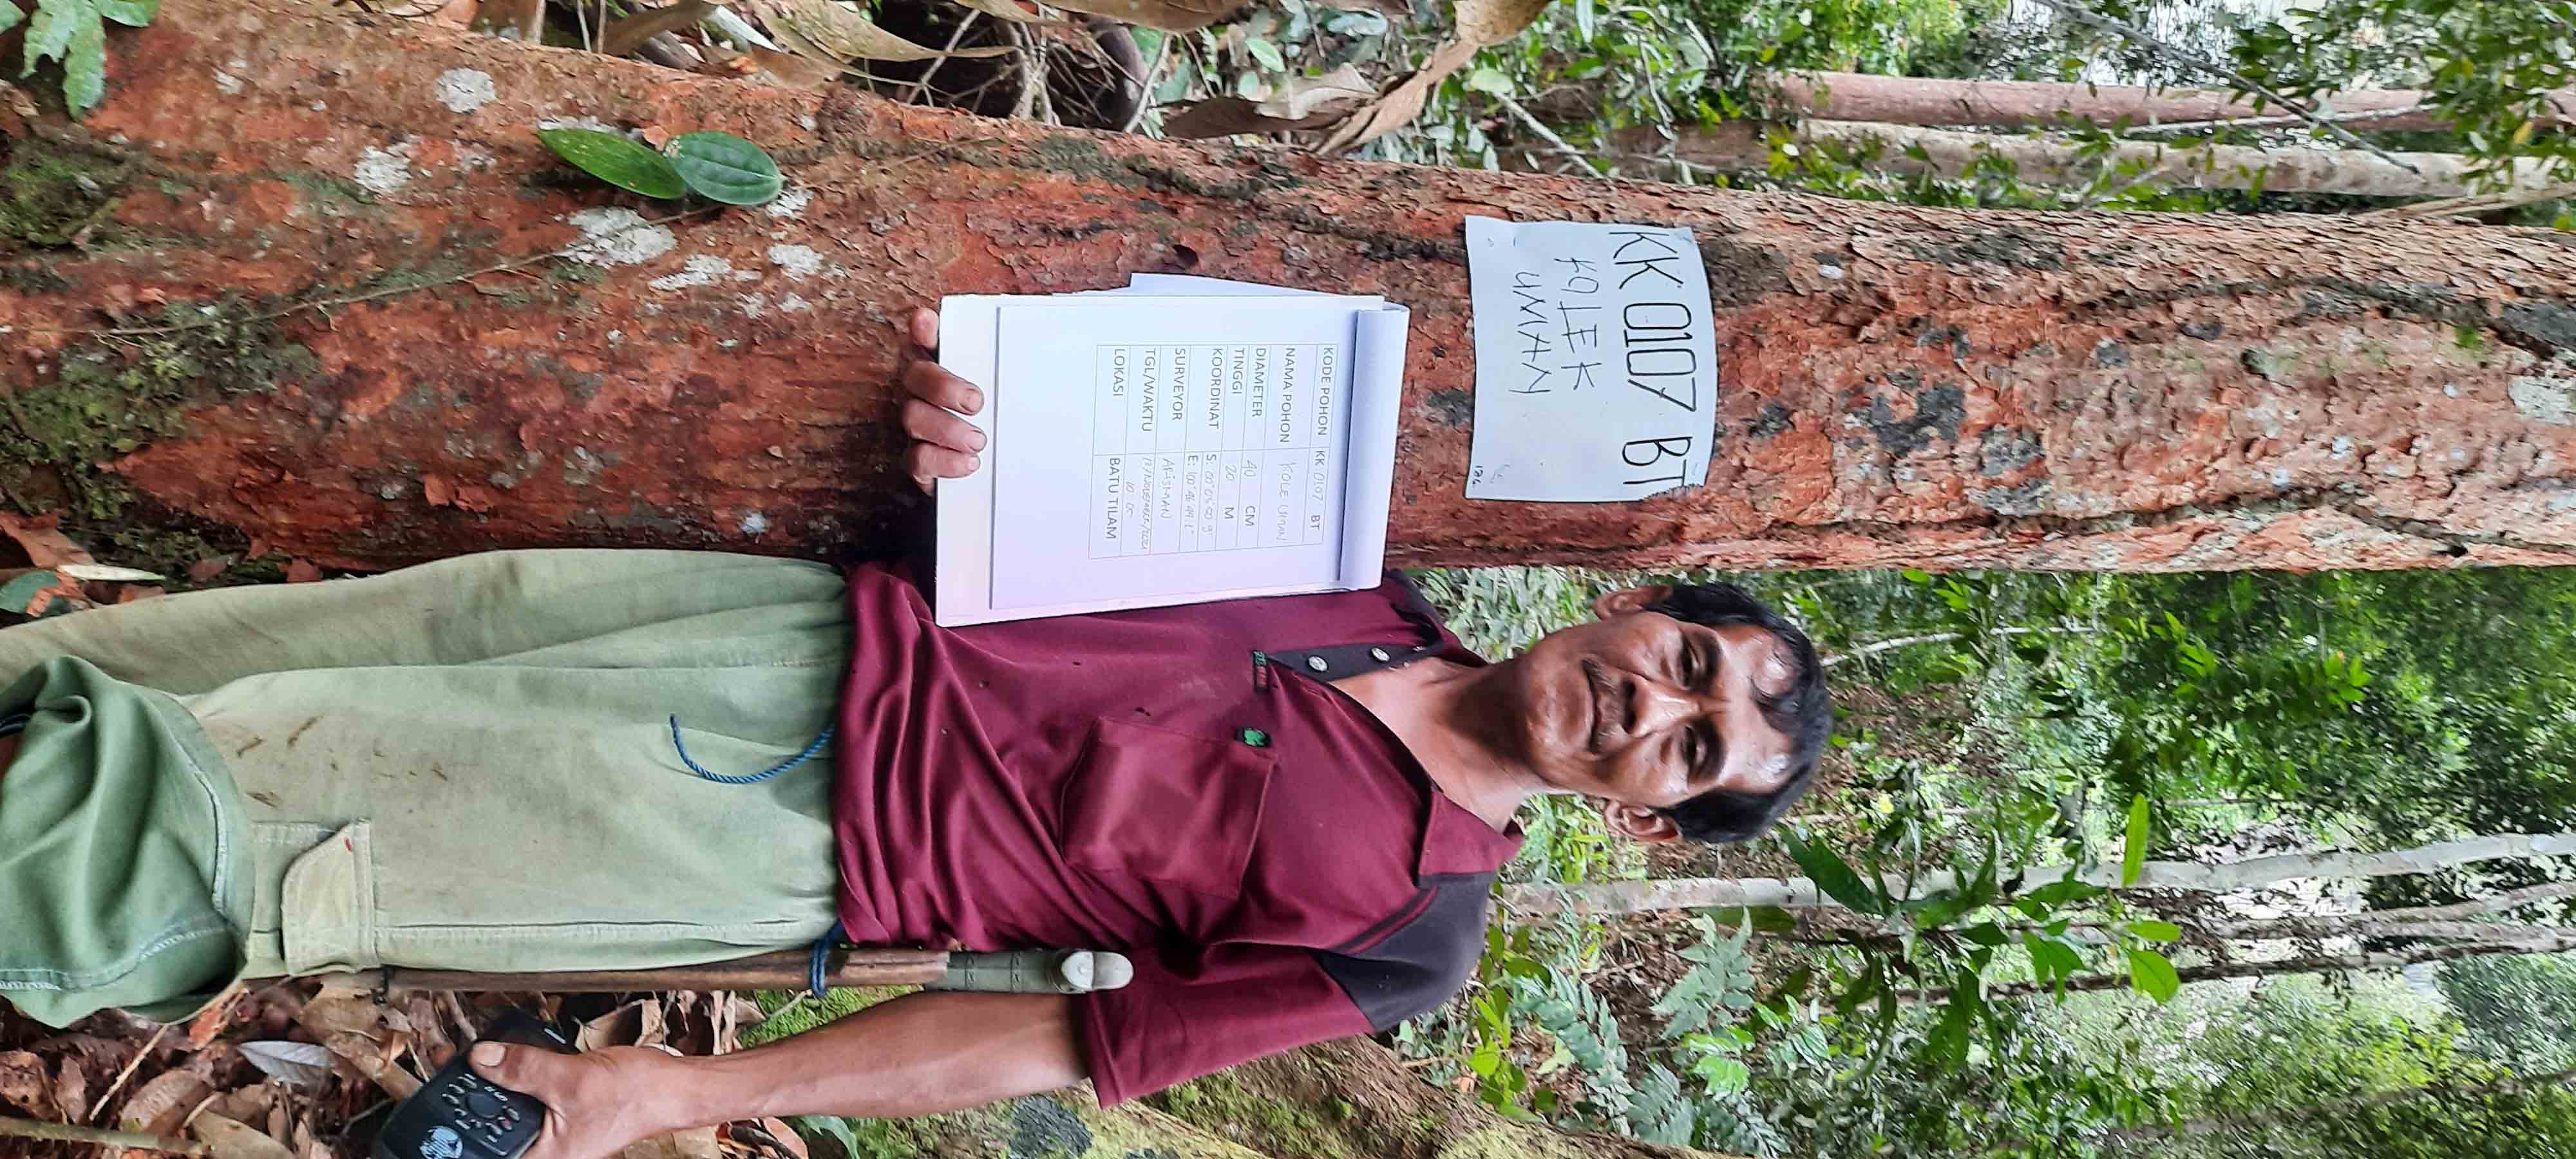 KK 0107 BT
KOLEK
UMAN
KODE POHON KK 0107 BT
NAMA POHON KOLE UMAN
DIAMETER 40 CM
TINGGI 20 M
KOORDINAT S:
E:
SURVEYOR ARISMAN
TGL/WAKTU
10
LOKASI BATU TILAM